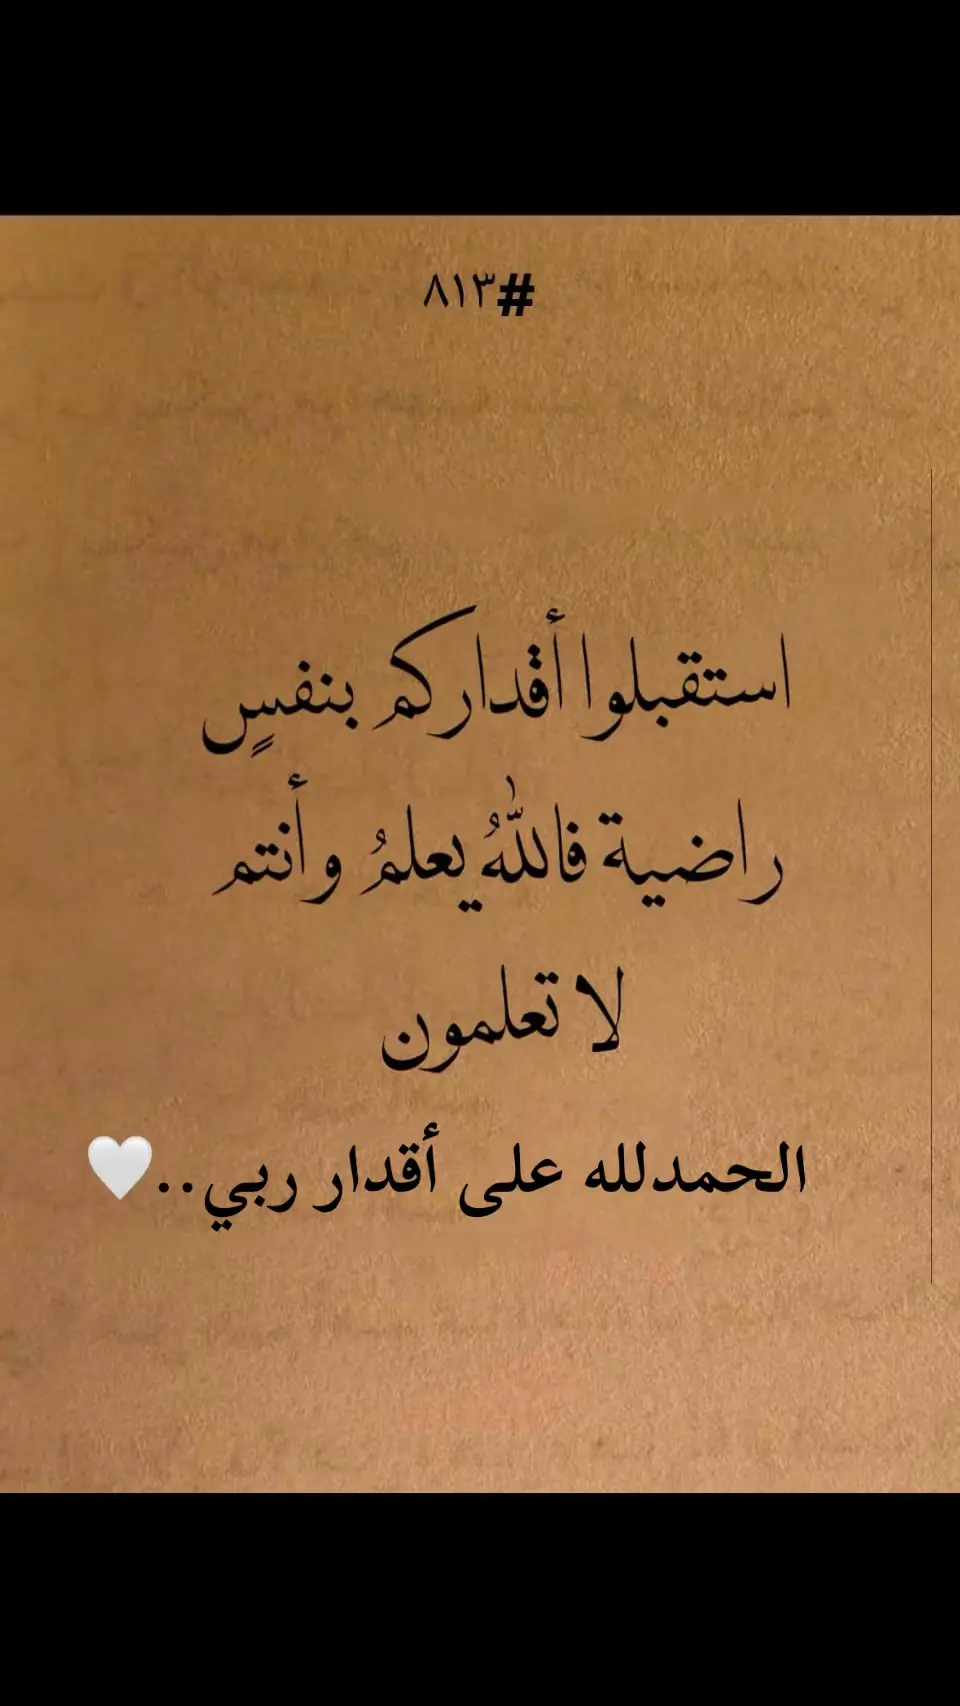 #٨١٣
استقبلوا أقداركم بنفسٍ
راضية فاللّٰهُ يعلمُ وأنتم
لا تعلمون
الحمدلله على أقدار ربي..🤍